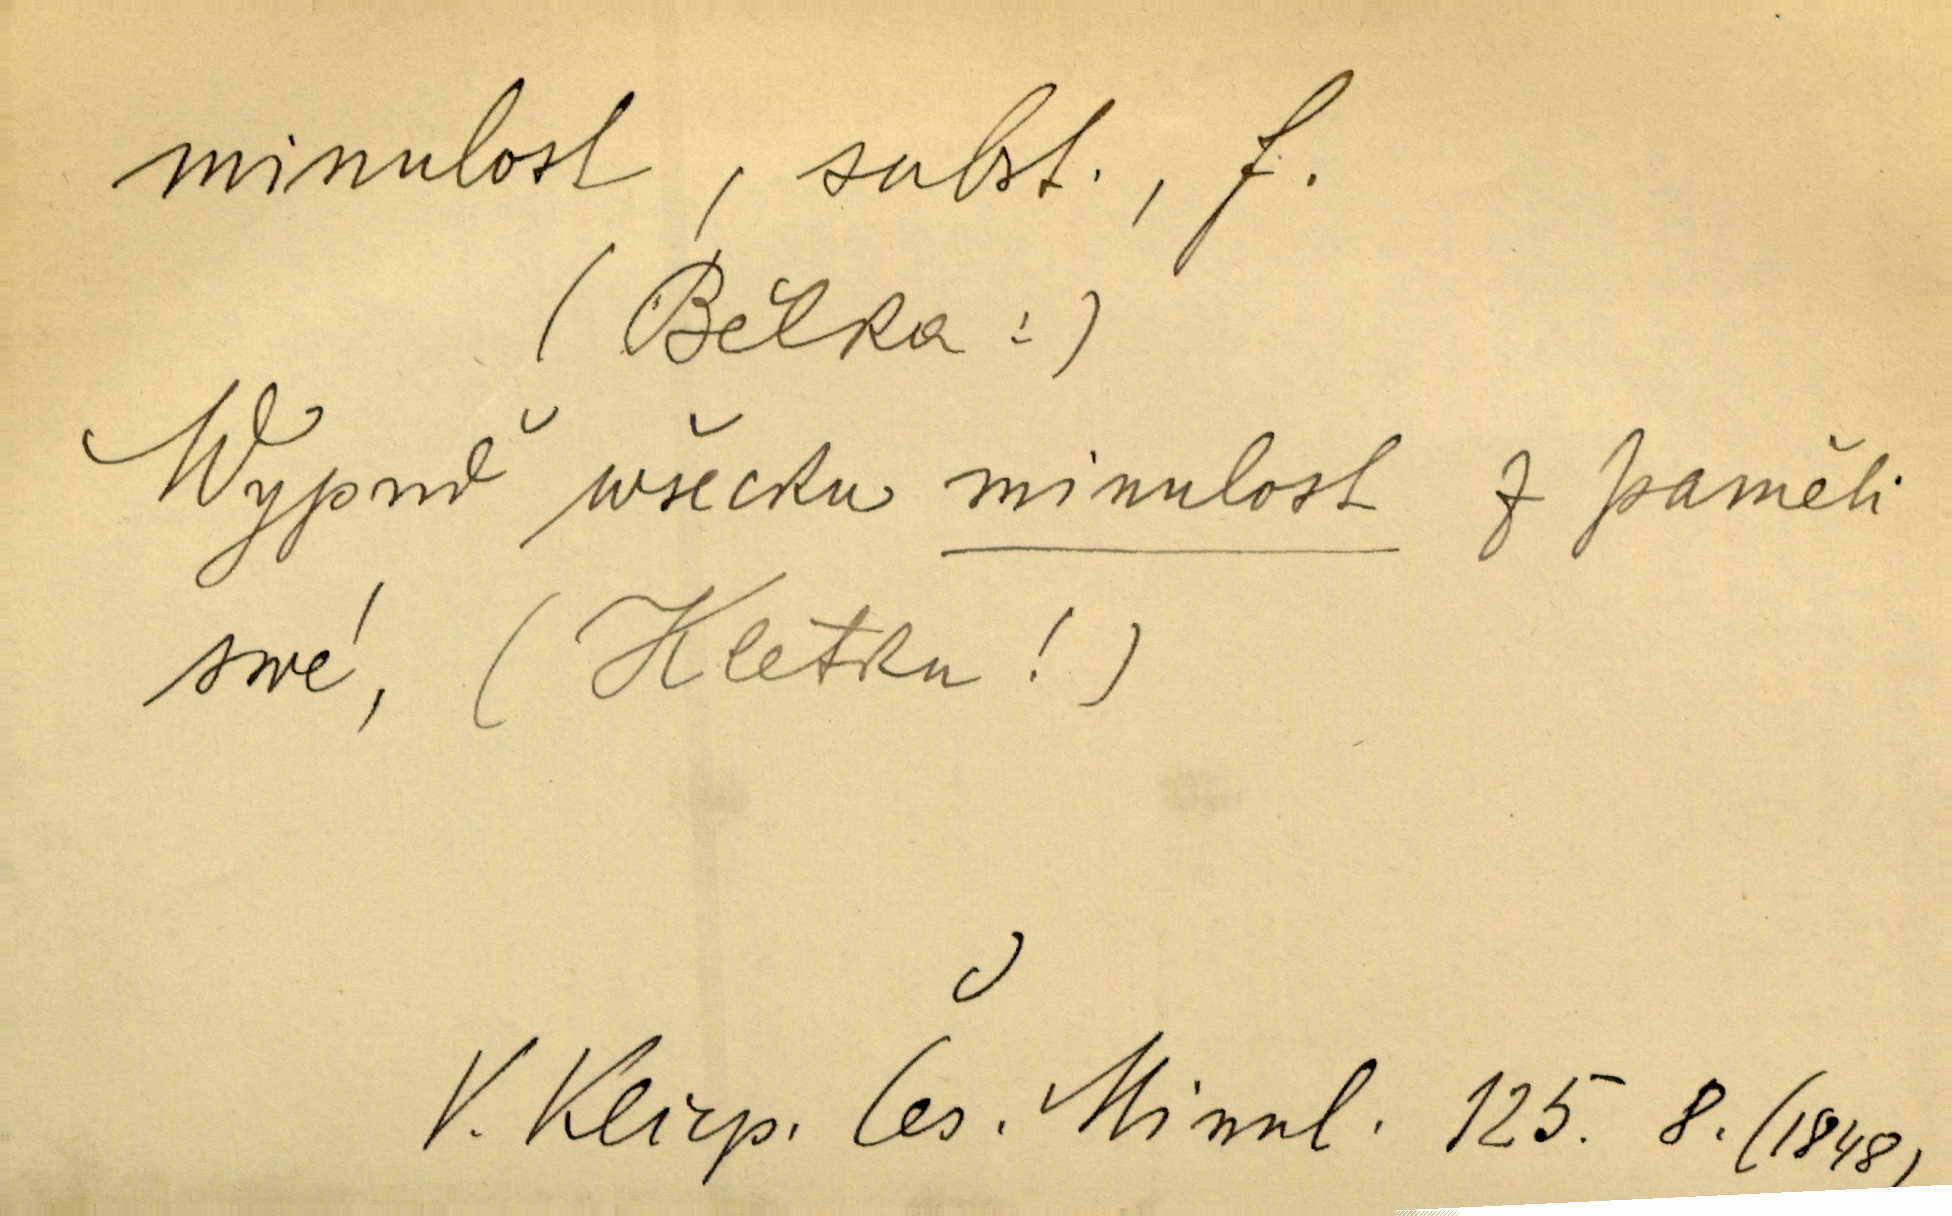 minulost, subst., f.
(Bělka:)
Wypuď wšecku minulost z paměti
swé, (Kletku!)
V. Klicp. Čes. Minul. 125. 8. (1848)